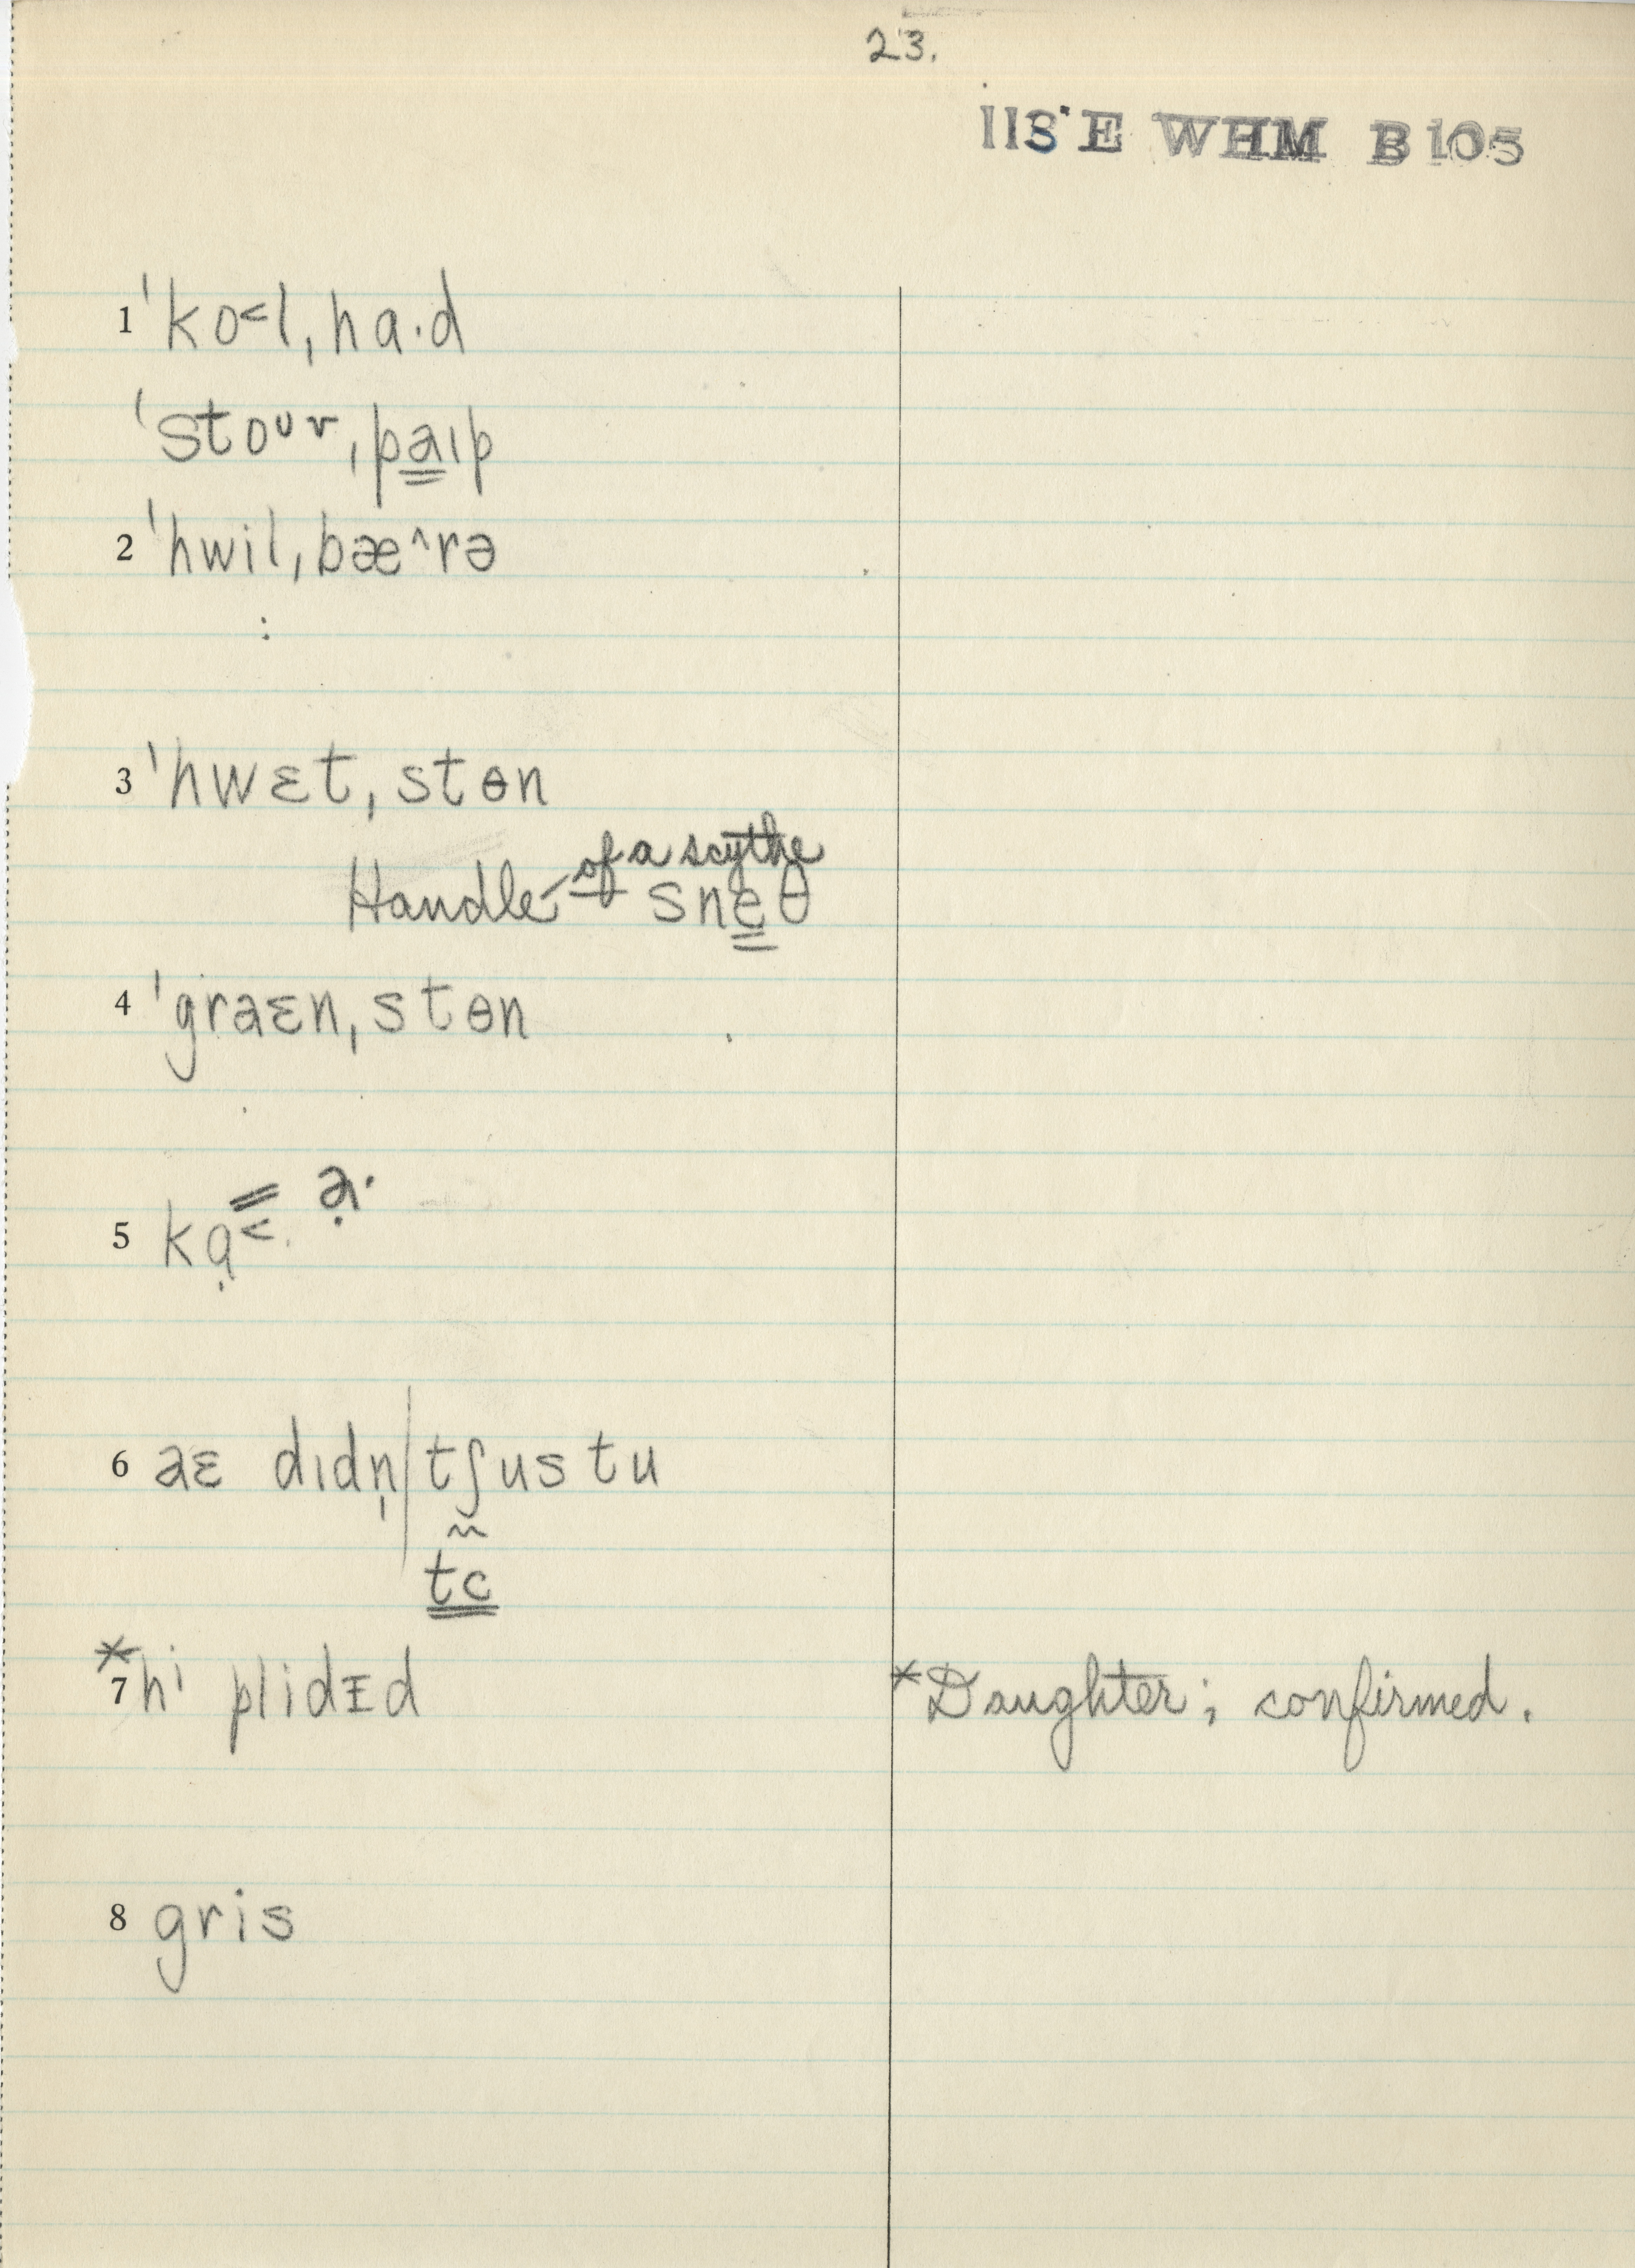 23.
118 E WHM B 105
1 ˈko˂l,ha·d
ˈstoᴜʳ,paɪp
2 ˈhwil,bæ^rə
:
3 ˈhwɛt,stɵn
of a scythe
Handle — sneθ
4 ˈgraɛn,stɵn
a̤·
5 kɑ̣˂·
6 aɛ dɪdn̩|tʃus tu
tc
*7 hi plidɪd *Daughter; confirmed.
8 gris